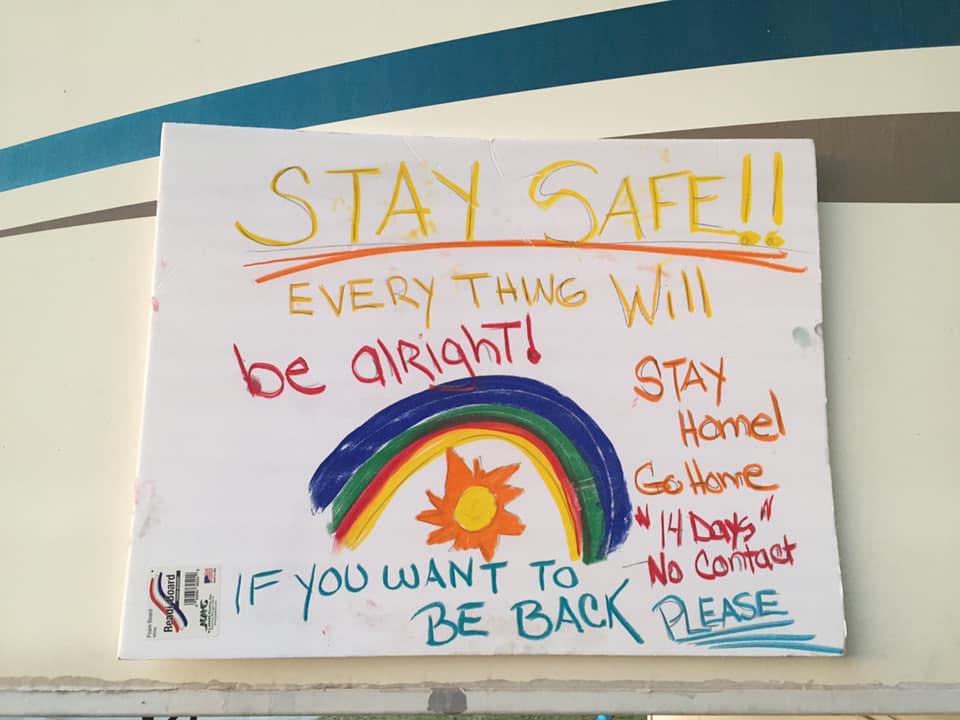 STAY SAFE!!
EVERY THING Will
be alRighT!
STAY
Home!
Go Home
"14 Days"
No Contact
IF YOU WANT TO
BE BACK
PLEASE
Foam Board
White
ReadiBoard